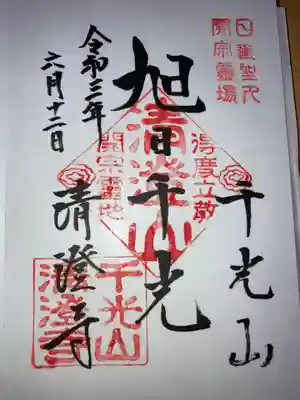 日蓮聖人
開宗霊場
千光山
得度立教
旭日千光
清澄山
開宗霊地
令和三年
六月十二日
清澄寺
千光山
清澄寺